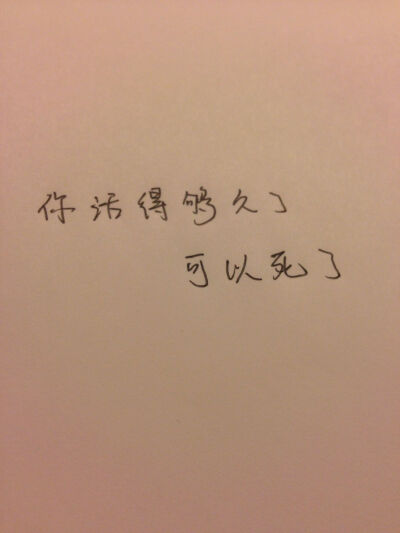 你活得够久了
可以死了